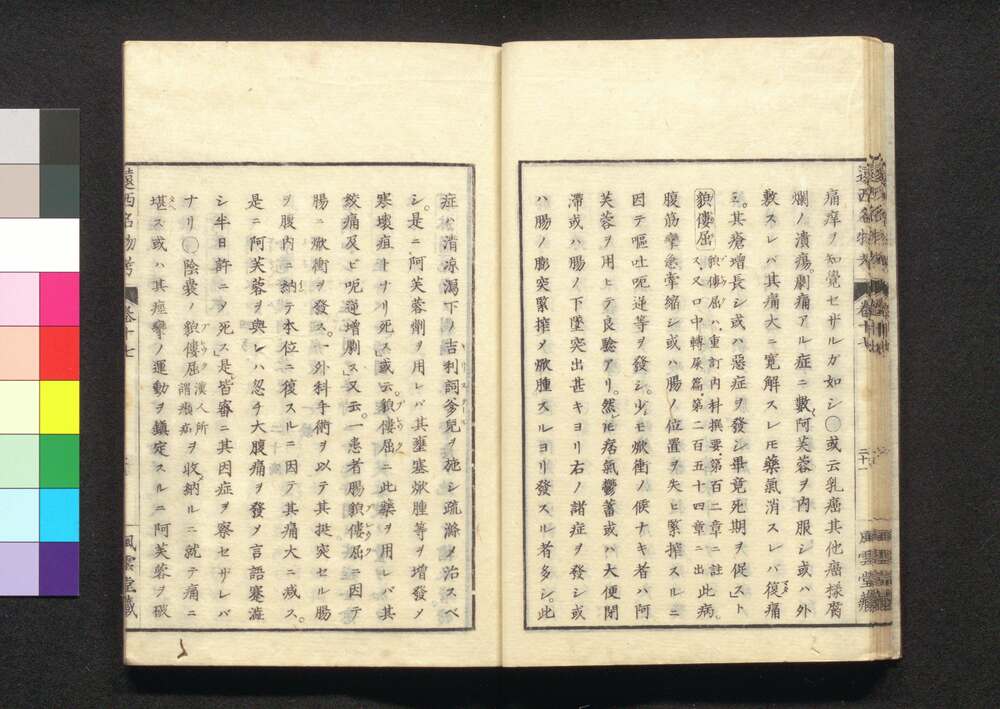 痛痒ヲ知覺セザルガ如シ○或云乳癌其他癌様腐
爛ノ潰瘍劇痛アル症ニ數〻阿芙蓉ヲ内服シ或ハ外
敷スレバ其痛大ニ寛解スレ𪜈藥氣消スレバ復痛
ミ其瘡增長シ或ハ惡症ヲ發シ畢竟死期ヲ促」スト
貌僂屈 貌僂屈ハ重訂内科撰要第百二章ニ註
ス又口中轉屎篇第二百五十四章ニ出此病
腹筋攣急牽縮シ或ハ腸ノ位置ヲ失ヒ緊搾スルニ
因テ嘔吐呃逆等ヲ發シ少モ焮衝ノ候ナキ者ハ阿
芙蓉ヲ用ヒテ良驗アリ。然𪜈痞氣鬱蓄或ハ大便閉
滯或ハ腸ノ下墜突出甚キヨリ右ノ諸症ヲ發シ或
ハ腸ノ膨突緊搾ノ焮腫スルヨリ發スル者多シ。此
遠西名物考 卷十七 風雲堂藏
症ハ清凉瀉下ノ吉利詞爹兒ヲ施シ疏滌ノ治スベ
シ。是ニ阿芙蓉劑ヲ用レバ其壅塞焮腫等ヲ增發ノ
寒壞疽トナリ死ス」或云。貌僂屈ニ此藥ヲ用レバ其
絞痛及ビ呃逆增劇ス」又云。一患者腸貌僂屈ニ因テ
腸ニ焮衝ヲ發ス。一外科手術ヲ以テ其挺突セル腸
ヲ腹内ニ納テ本位ニ復スルニ因テ其痛大ニ減ス。
是ニ阿芙蓉ヲ與レハ忽チ大腹痛ヲ發ノ言語蹇澁
シ半日許ニヲ死ス」是皆審ニ其因症ヲ察セザレバ
ナリ○陰嚢ノ貌僂屈 漢人所
謂㿗疝 ヲ收納ルニ就テ痛ニ
堪ス或ハ其痙攣ノ運動ヲ鎮定スルニ阿芙蓉ヲ砍
遠西名物考 卷十七 風雲堂藏